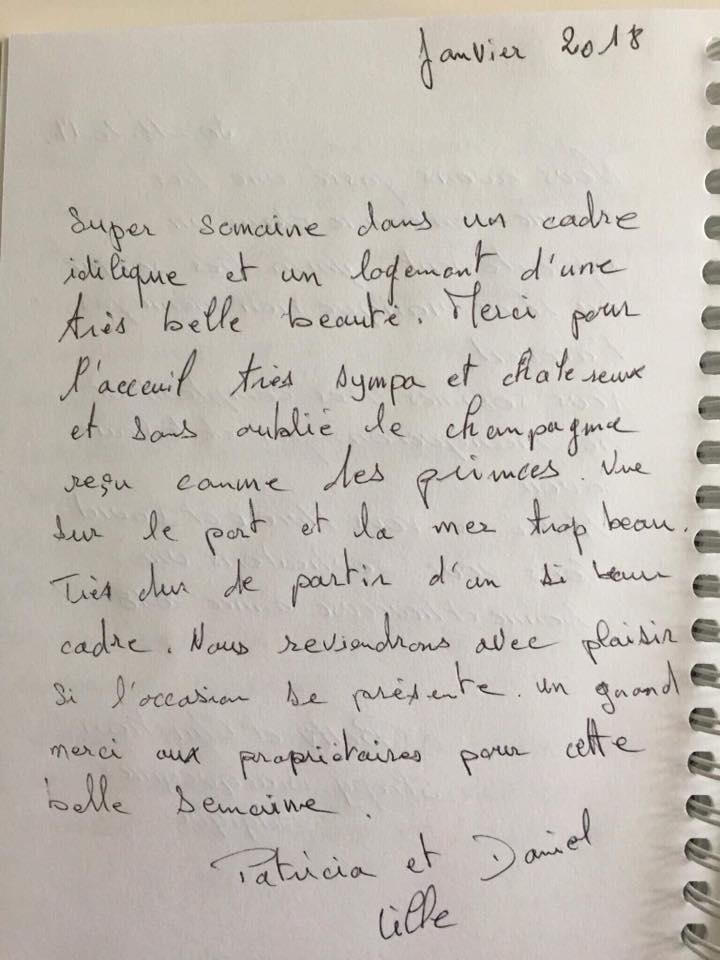 Janvier 2018
Super semaine dans un cadre
idilique et un logement d'une
très belle beauté. Merci pour
l'acceuil très sympa et chalereux
et sans oublié le champagne
reçu comme des princes. Vue
sur le port et la mer trop beau.
Très dur de partir d'un si beau
cadre. Nous reviendrons avec plaisir
si l'occasion se présente. un grand
merci aux propriétaires pour cette
belle semaine.
Patricia et Daniel
Lille